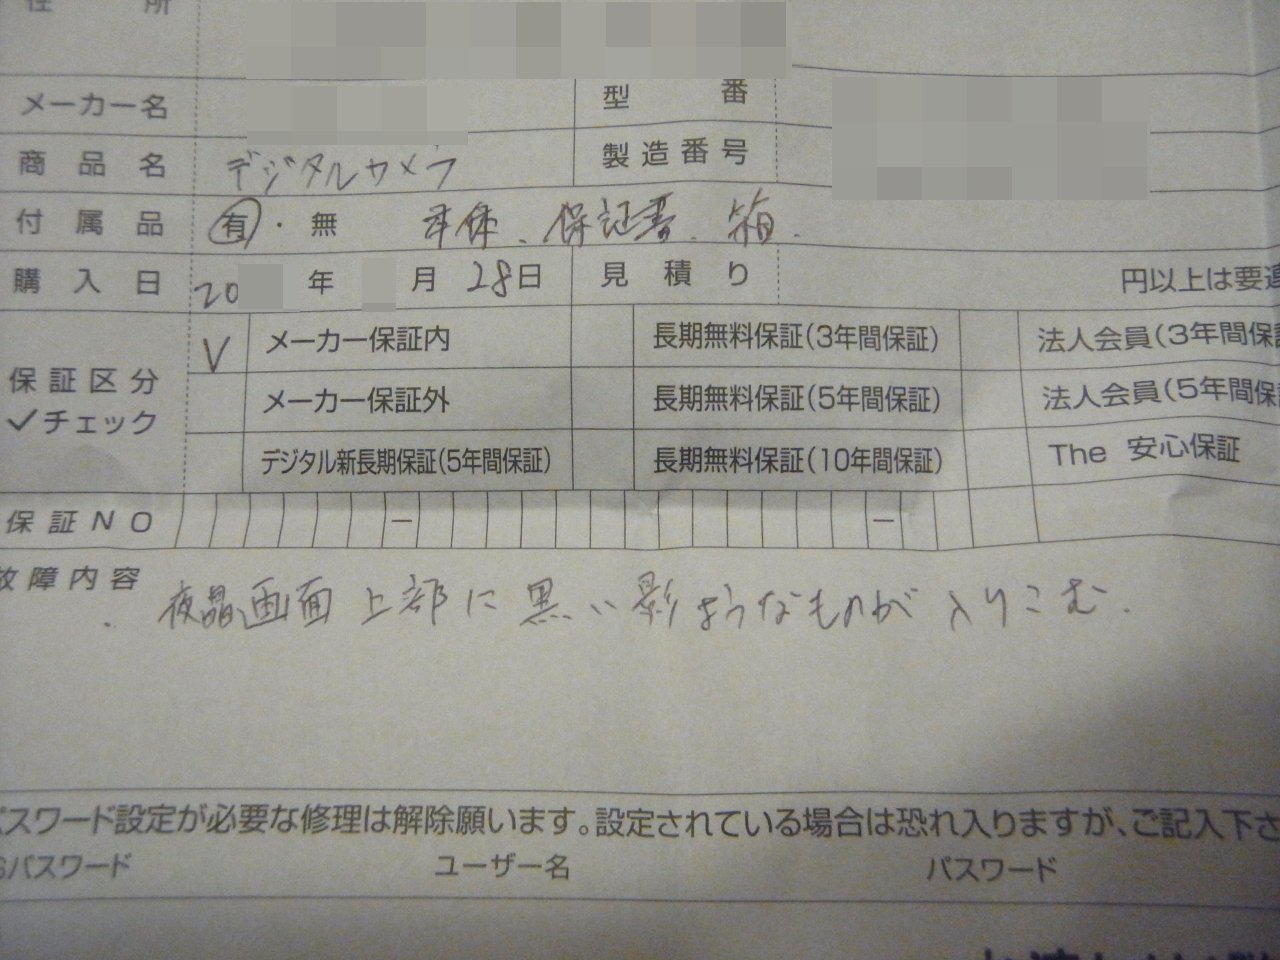 住所
メーカー名 型番
商品名 デジタルカメラ 製造番号
付属品 有・無 本体、保証書、箱.
購入日 20 年 月 28日 見積り 円以上は要連
保証区分 ✓チェック
V メーカー保証内 長期無料保証(3年間保証) 法人会員(3年間保証
メーカー保証外 長期無料保証(5年間保証) 法人会員(5年間保証
デジタル新長期保証(5年間保証) 長期無料保証(10年間保証) The 安心保証
保証NO － －
故障内容
・液晶画面上部に黒い影ようなものが入りこむ.
パスワード設定が必要な修理は解除願います。設定されている場合は恐れ入りますが、ご記入下さ
Sパスワード ユーザー名 パスワード